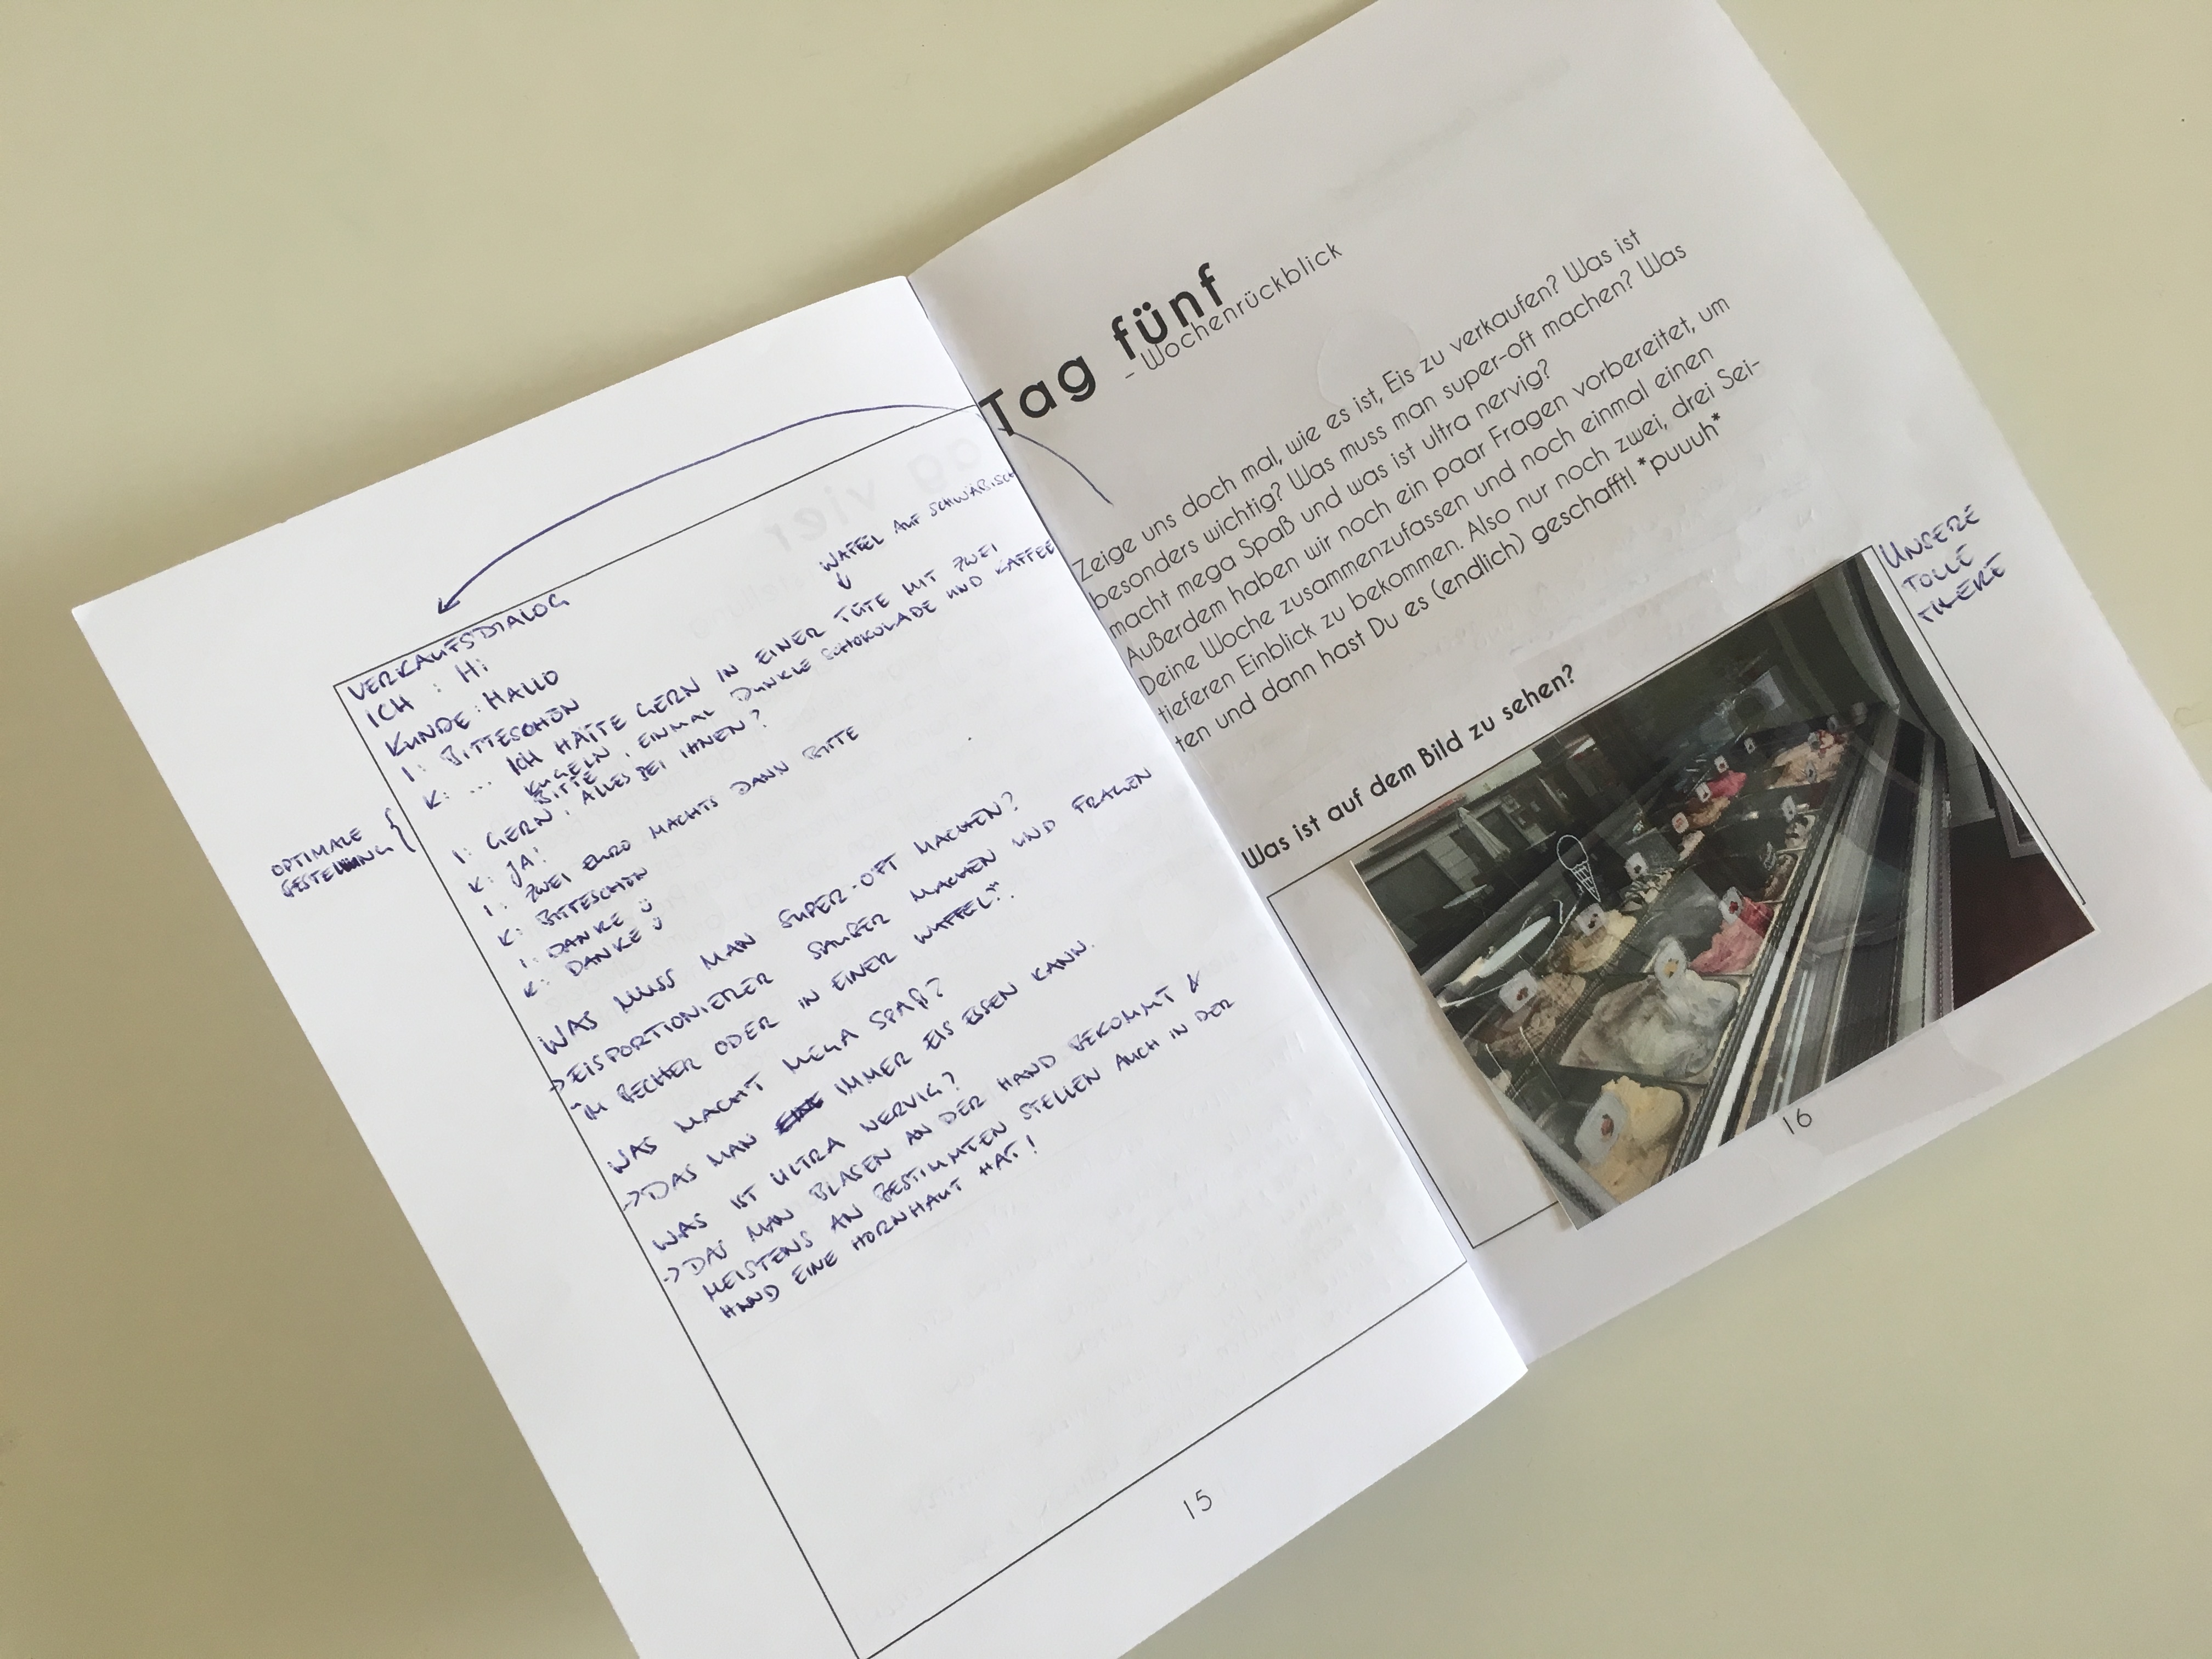 VERKAUFSDIALOG
ICH : Hi
KUNDE : HALLO
I: BITTESCHÖN
WAFFEL AUF SCHWÄBISCH
K: ... ICH HÄTTE GERN IN EINER TÜTE MIT ZWEI
KUGELN, EINMAL DUNKLE SCHOKOLADE UND KAFFEE
BITTE
OPTIMALE
BESTELLUNG {
I: GERN, ALLES BEI IHNEN?
K: JA!
I: ZWEI EURO MACHTS DANN BITTE
K: BITTESCHÖN
I: DANKE ü
K: DANKE ü
WAS MUSS MAN SUPER-OFT MACHEN?
→ EISPORTIONIERER SAUBER MACHEN UND FRAGEN
"IM BECHER ODER IN EINER WAFFEL?"
WAS MACHT MEGA SPAß?
→ DAS MAN IMMER EIS ESSEN KANN.
WAS IST ULTRA NERVIG?
→ DAS MAN BLASEN AN DER HAND BEKOMMT &
MEISTENS AN BESTIMMTEN STELLEN AUCH IN DER
HAND EINE HORNHAUT HAT!
15
Tag fünf
– Wochenrückblick
Zeige uns doch mal, wie es ist, Eis zu verkaufen? Was ist
besonders wichtig? Was muss man super-oft machen? Was
macht mega Spaß und was ist ultra nervig?
Außerdem haben wir noch ein paar Fragen vorbereitet, um
Deine Woche zusammenzufassen und noch einmal einen
tieferen Einblick zu bekommen. Also nur noch zwei, drei Sei-
ten und dann hast Du es (endlich) geschafft! *puuuh*
Was ist auf dem Bild zu sehen?
UNSERE
TOLLE
THEKE
16